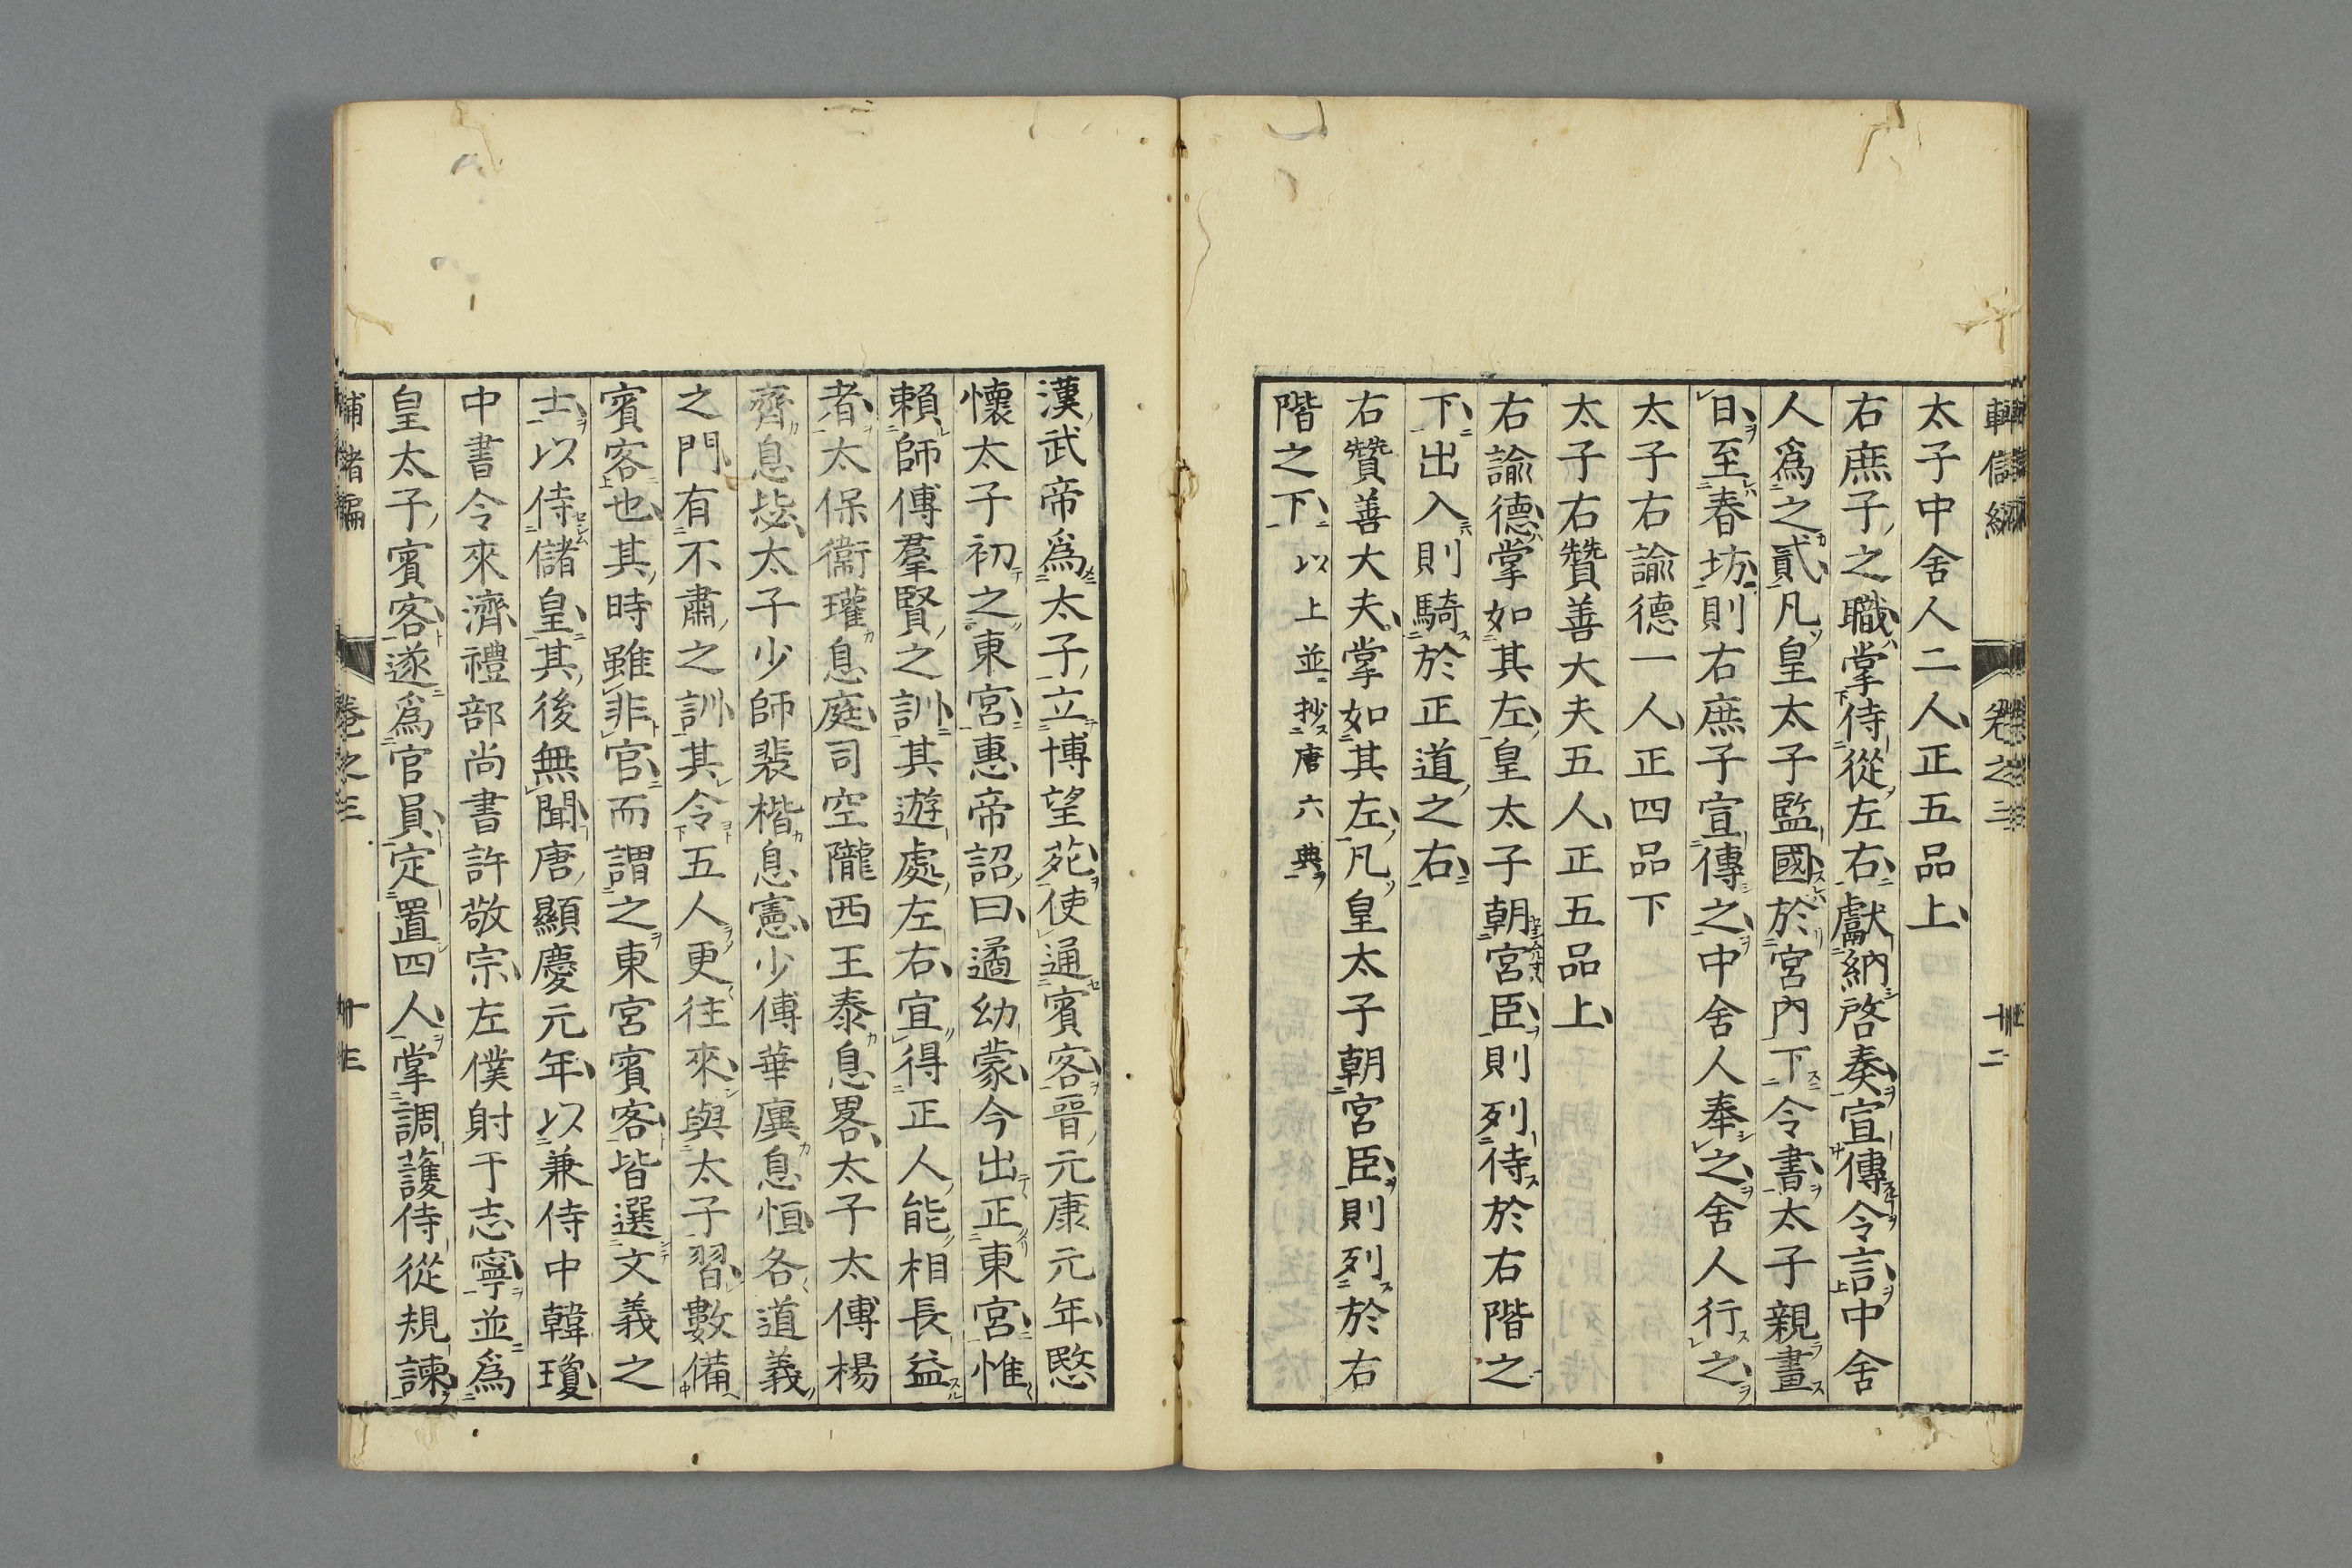 太子中舍人二人正五品上
右庶子之職掌侍從左右獻納啓奏宣傳令言中舍
人爲之貳凡皇太子監國於宮內下令書太子親畫
日至春坊則右庶子宣傳之中舍人奉之舍人行之
太子右諭德一人正四品下
太子右贊善大夫五人正五品上
右諭德掌如其左皇太子朝宮臣則列侍於右階之
下出入則騎於正道之右
右贊善大夫掌如其左凡皇太子朝宮臣則列於右
階之下以上並抄唐六典
漢武帝爲太子立博望苑使通賓客晉元康元年愍
懷太子初之東宮惠帝詔曰遹幼蒙今出正東宮惟
賴師傅羣賢之訓其遊處左右宜得正人能相長益
者太保衞瓘息庭司空隴西王泰息畧太子太傅楊
齊息毖太子少師裴楷息憲少傅華廙息恒各道義
之門有不肅之訓其令五人更往來與太子習數備
賓客也其時雖非官而謂之東宮賓客皆選文義之
士以侍儲皇其後無聞唐顯慶元年以兼侍中韓瓊
中書令來濟禮部尚書許敬宗左僕射于志寧並爲
皇太子賓客遂爲官員定置四人掌調護侍從規諫
卷之三